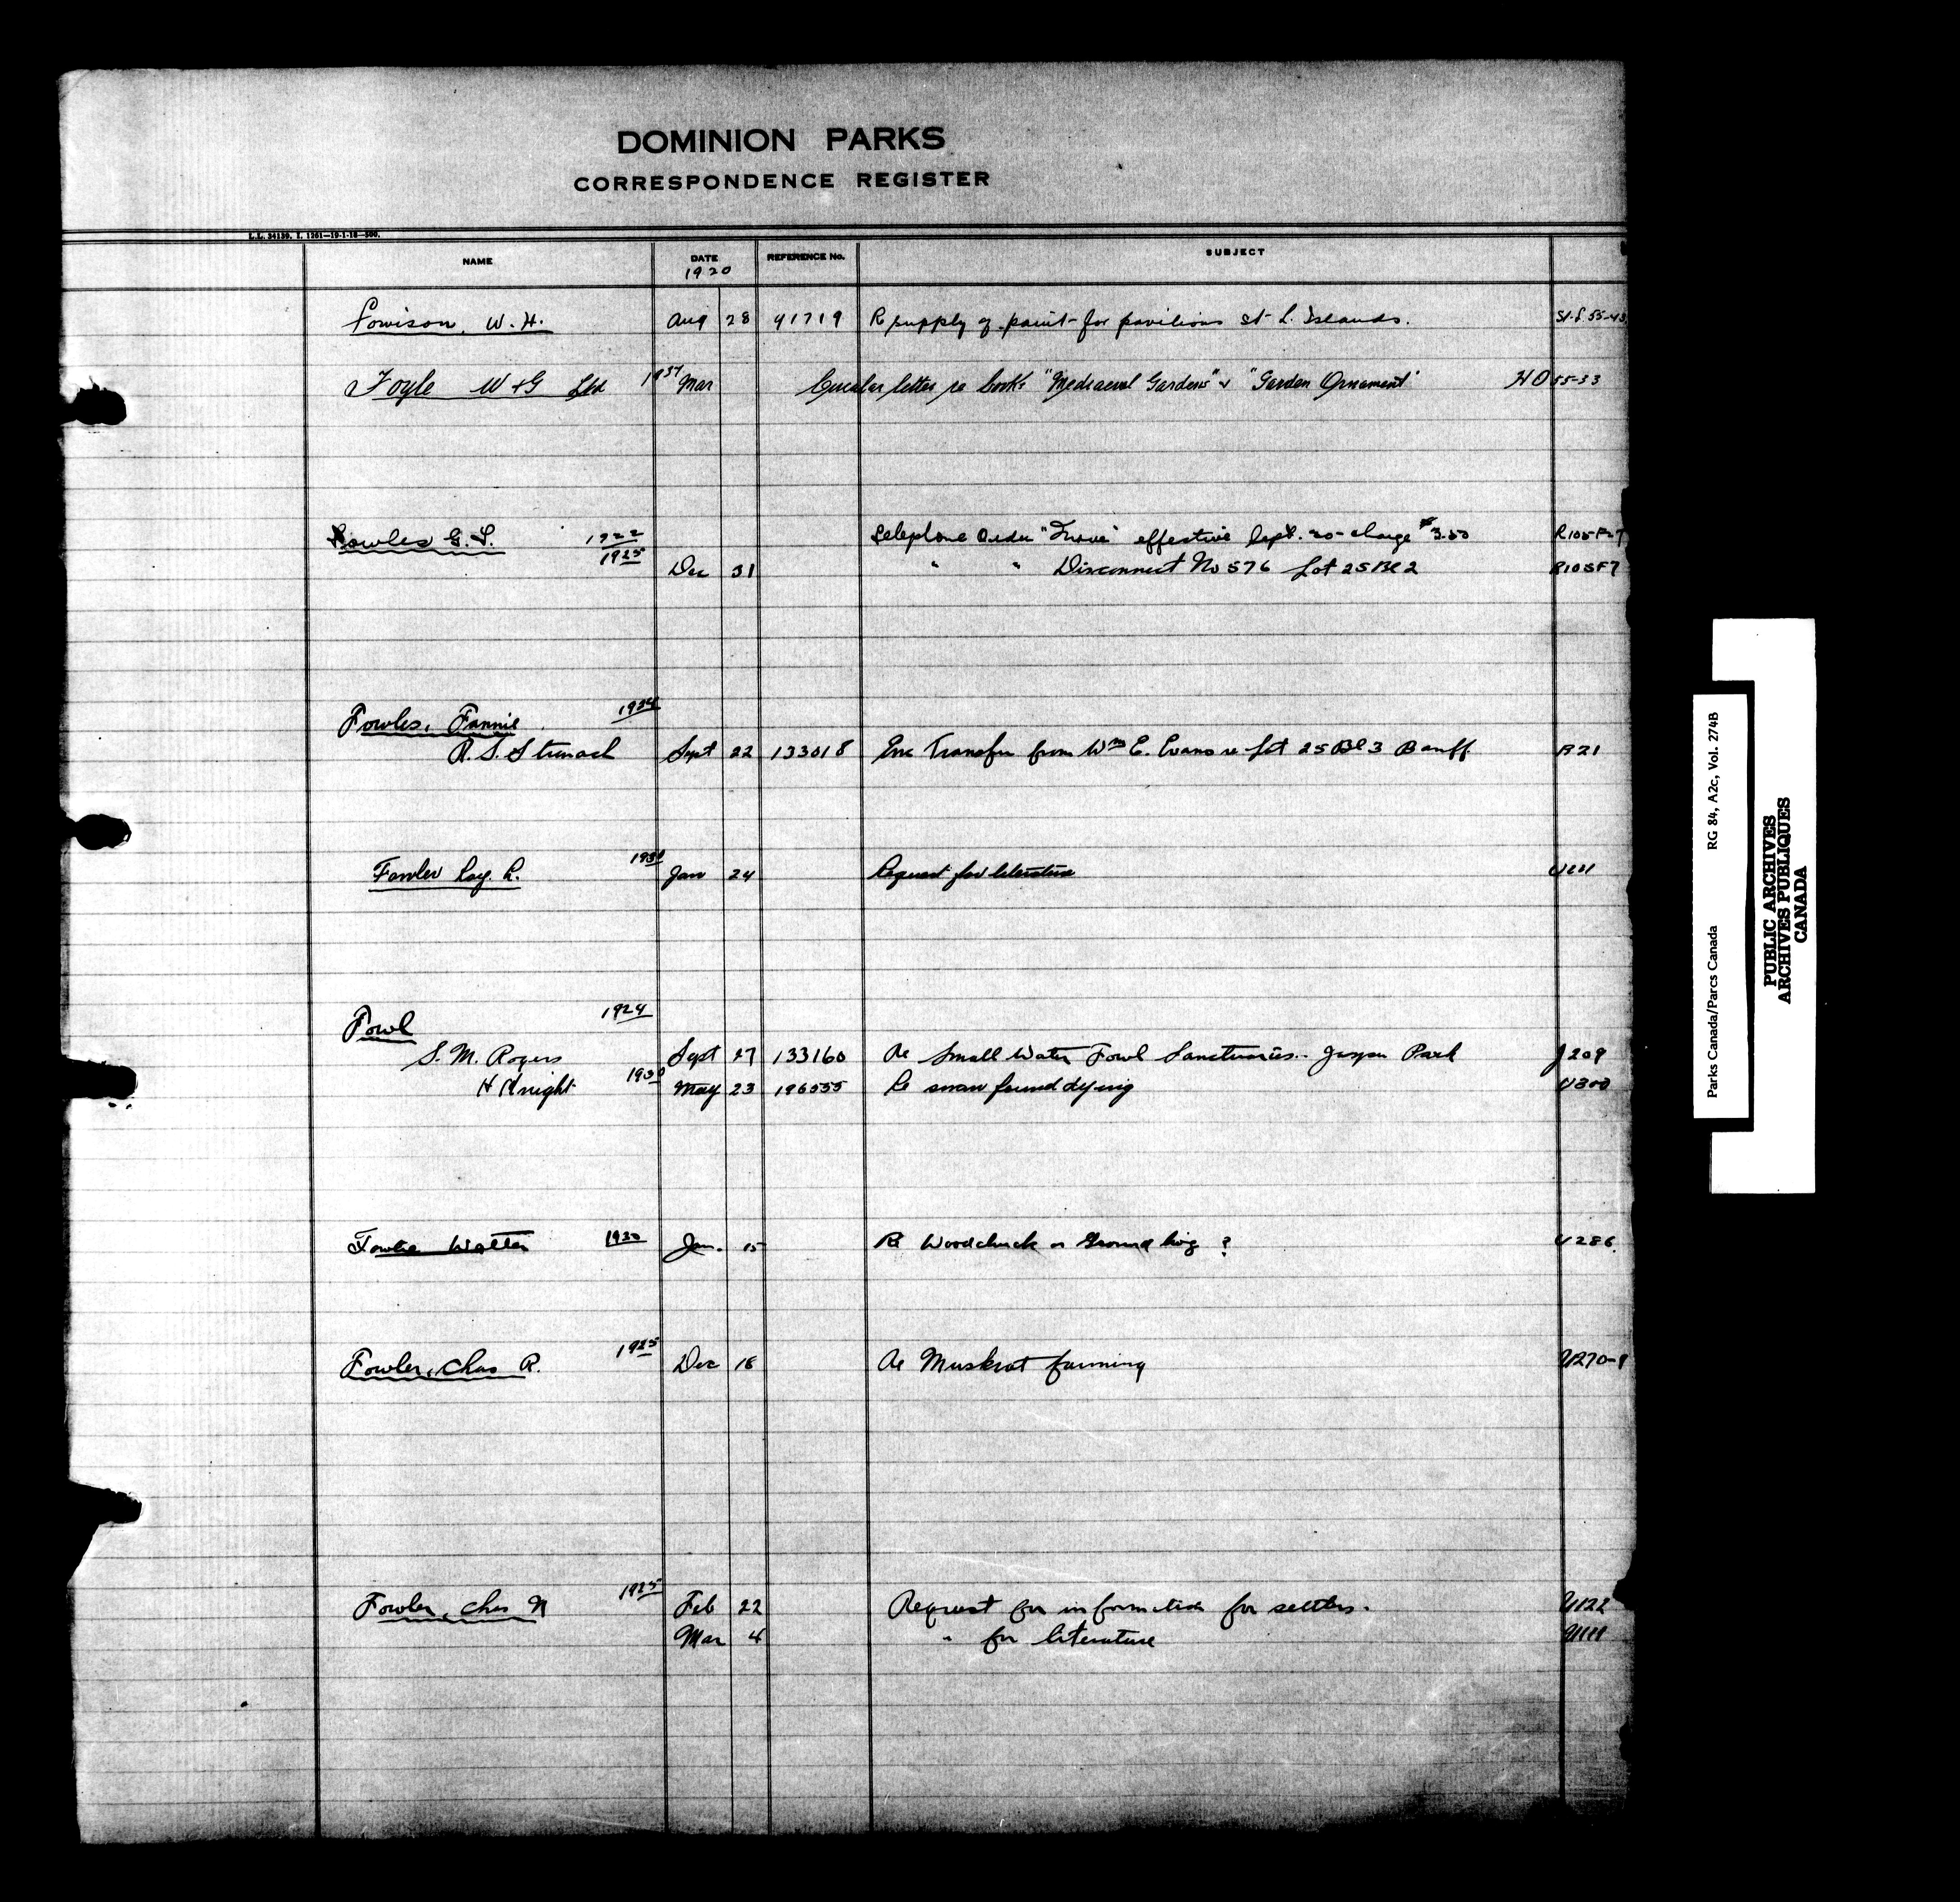 DOMINION PARKS
CORRESPONDENCE REGISTER
L.L. 34139. I. 1261—19-1-18—500.
NAME DATE REFERENCE No. SUBJECT
1920
Fowison, W. H. Aug 28 91719 Re supply of paint for pavilions St. L. Islands. St. L 55-43
Foyle W & G Ltd 1937 Mar Circular letter re books "Mediaeval Gardens" & "Garden Ornament" HO 55-33
Fowles G. L. 1922 Telephone Order "Move" effective Sept. 20 - charge $3.50 R105F-7
1925
Dec 31 " " Disconnect No 576 Lot 25 Bl 2 R105F7
Fowles, Fannie 1924
R. S. Stronach Sept 22 133018 Enc Transfer from Wm E. Evans re Lot 25 Bl 3 Banff B21
Fowler 1930 Jan 24 Request for literature U111
Fowl 1924
S. M. Rogers Sept 27 133160 Re Small Water Fowl Sanctuaries.. Jasper Park J209
H Knight 1930 May 23 196555 Re swan found dying U300
Walter 1930 Jan. 15 Re Woodchuck or Ground hog ? U286
Fowler, Chas R. 1925 Dec 18 Re Muskrat farming U270-1
Fowler, Chas N 1925 Feb 22 Request for information for settlers. U122
Mar 4 " for literature U111
Parks Canada/Parcs Canada RG 84, A2c, Vol. 274B
PUBLIC ARCHIVES
ARCHIVES PUBLIQUES
CANADA